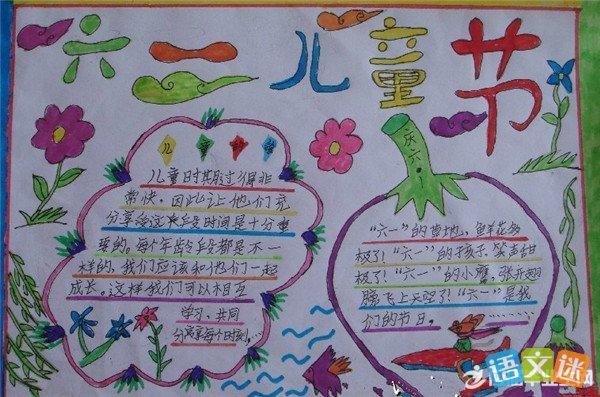 六一儿童节
儿童时期过得非
常快,因此让他们充
分享受这段时间是十分重
要的,每个年龄段都是不一
样的,我们应该和他们一起
成长,这样我们可以相互
学习、共同
分享每个时刻……
庆六一
"六一"的草地,鲜花多
极了!"六一"的孩子,笑声甜
极了!"六一"的小鹰,张开翅
膀飞上天空了!"六一"是我
们的节日。
语文迷